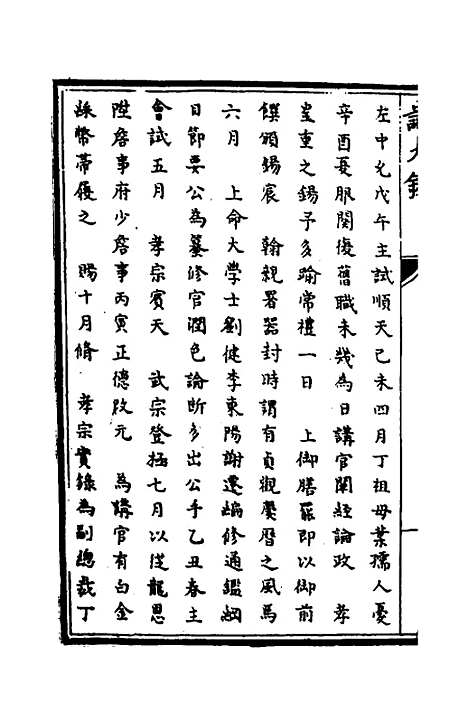 左中允戊午主試順天己未四月丁祖母葉孺人憂
辛酉憂服闋復舊職未幾為日講官闡經論政　孝
皇重之錫予多踰常禮一日　上御膳罷即以御前
饌頒錫宸　翰親署器封時謂有貞觀慶曆之風焉
六月　上命大學士劉健李東陽謝遷編修通鑑綱
目節要公為纂修官潤色論斷多出公手乙丑春主
會試五月　孝宗賓天　武宗登極七月以從龍恩
陞詹事府少詹事丙寅正德改元　為講官有白金
綵幣帶履之　賜十月脩　孝宗實錄為副總裁丁